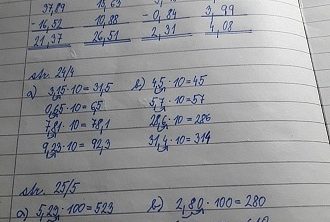 37,89 15,63 3,99
- 16,52 10,88 - 0,84 4,08
21,37 26,51 2,31
str. 24/4
a) 3,15 · 10 = 31,5 b) 4,5 · 10 = 45
0,65 · 10 = 6,5 5,7 · 10 = 57
7,81 · 10 = 78,1 28,6 · 10 = 286
9,23 · 10 = 92,3 31,4 · 10 = 314
str. 25/5
a) 5,23 · 100 = 523 b) 2,80 · 100 = 280